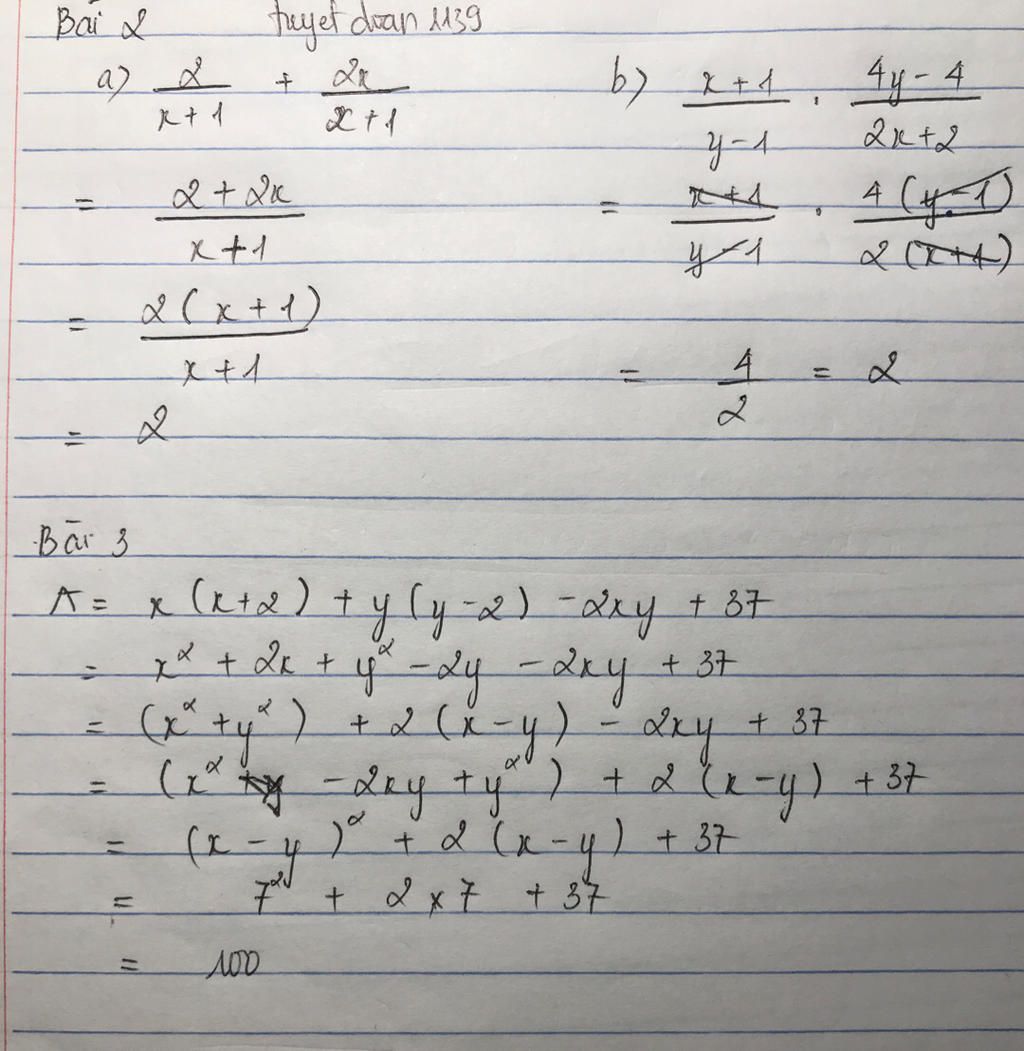 Bài 2 tuyet doan 1139
a) 2/(x+1) + 2x/(x+1)
= (2 + 2x)/(x+1)
= 2(x+1)/(x+1)
= 2
b) (x+1)/(y-1) . (4y-4)/(2x+2)
= (x+1)/(y-1) . 4(y-1)/2(x+1)
= 4/2 = 2
Bài 3
A = x(x+2) + y(y-2) - 2xy + 37
= x² + 2x + y² - 2y - 2xy + 37
= (x² + y²) + 2(x-y) - 2xy + 37
= (x² - 2xy + y²) + 2(x-y) + 37
= (x-y)² + 2(x-y) + 37
= 7² + 2 x 7 + 37
= 100